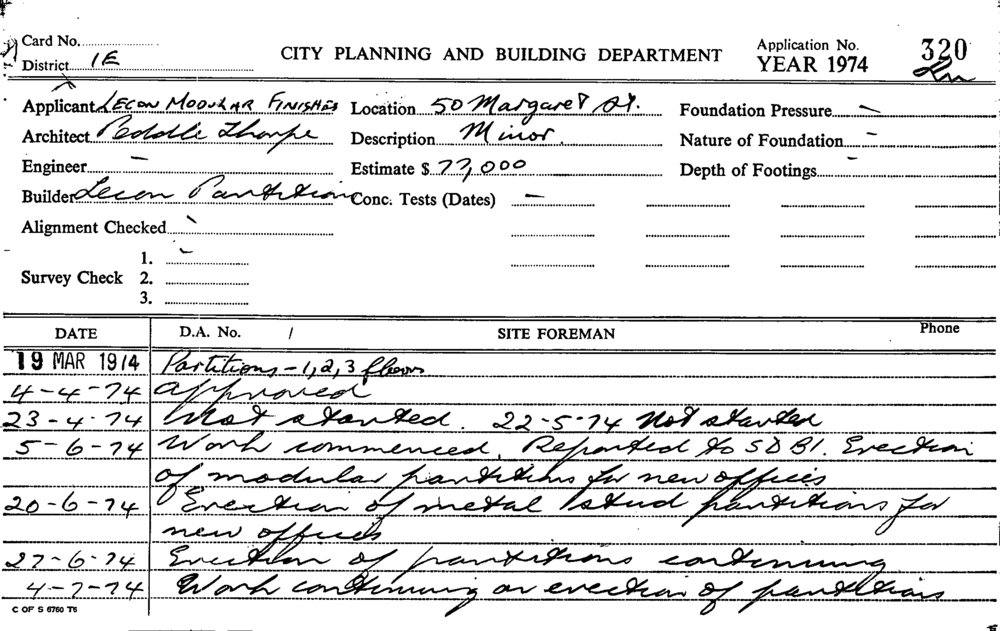 Card No.
District 1E
CITY PLANNING AND BUILDING DEPARTMENT
Application No. 320
YEAR 1974
Applicant LECON MODULAR FINISHES Location 50 Margaret St. Foundation Pressure -
Architect Peddle Thorpe Description Minor. Nature of Foundation -
Engineer - Estimate $ 77,000 Depth of Footings -
Builder Lecon Partitions Conc. Tests (Dates) -
Alignment Checked
Survey Check 1.
2.
3.
DATE D.A. No. / SITE FOREMAN Phone
19 MAR 1974 Partitions - 1, 2, 3 floors
4-4-74 approved
23-4-74 Not started. 22-5-74 Not started
5-6-74 Work commenced. Reported to SDBI. Erection
of modular partitions for new offices
20-6-74 Erection of metal stud partitions for
new offices
27-6-74 Erection of partitions continuing
4-7-74 Work continuing on erection of partitions
C OF S 6760 T6